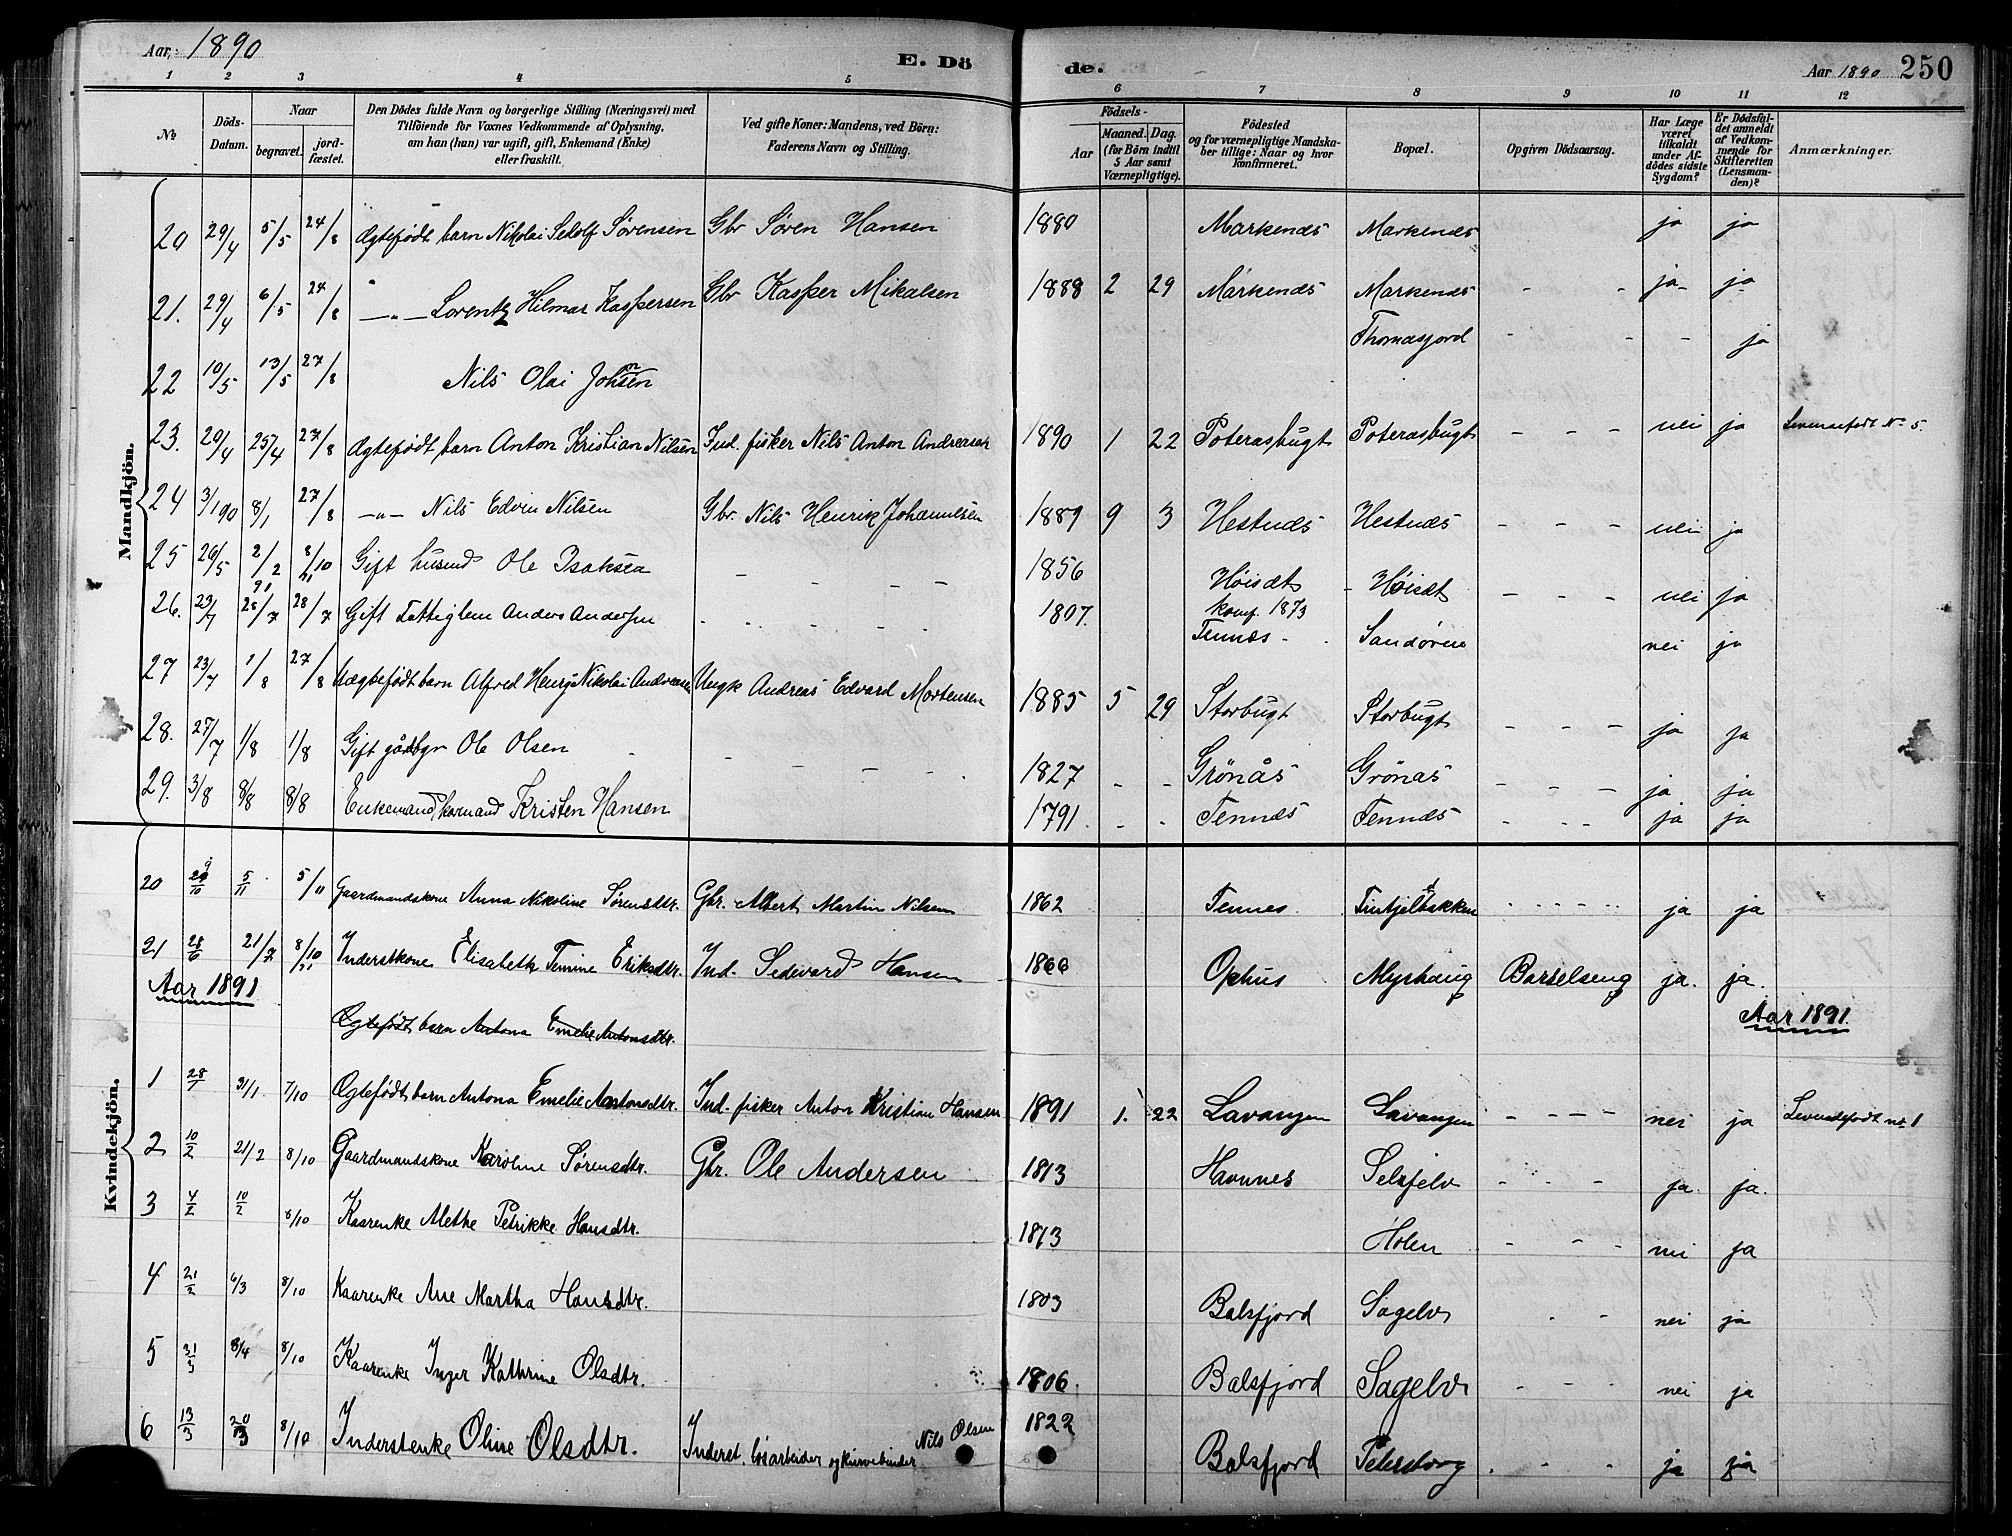 Aar, 1890
E. Dö
de.
Aar 1890 250
1 2 3 4 5 6 7 8 9 10 11 12
№
Döds-Datum.
Naar
begravet.
jord-fæstet.
Den Dödes fulde Navn og borgerlige Stilling (Næringsvei) med
Tilföiende for Voxnes Vedkommende af Oplysning,
om han (hun) var ugift, gift, Enkemand (Enke)
eller fraskilt.
Ved gifte Koner: Mandens, ved Börn:
Faderens Navn og Stilling.
Födsels-
Aar
Maaned. Dag.
(for Börn indtil
5 Aar samt
Værnepligtige).
Födested
og for værnepligtige Mandska-
ber tillige: Naar og hvor
konfirmeret.
Bopæl.
Opgiven Dödsaarsag.
Har Læge
været
tilkaldt
under Af-
dödes sidste
Sygdom?
Er Dödsfal-
det anmeldt
af Vedkom-
mende for
Skifteretten
(Lensman-
den)?
Anmærkninger.
Mandkjön.
20 29/4 5/5 24/8 Ægtefødt barn Nikolai Selolf Sørensen Gbr Søren Hansen 1880 Markenæs Markenæs ja ja
21. 29/4 6/5 24/8 —"— Lorentz Hilmar Kaspersen Gbr Kasper Mikalsen 1888 2 29 Markenæs Markenæs - - ja ja
22 10/5 13/5 27/8 Nils Olai Johnsen Thomasjord - - ja
23. 20/4 25/4 27/8 Ægtefødt barn Anton Kristian Nilsen Ind. fisker Nils Anton Andreasen 1890 1 22 Poteræsbugt Poteræsbugt - - - nei ja Levendefødt No 5.
24 3/1 90 8/1 27/8 —"— Nils Edvin Nilsen Gbr. Nils Henrik Johannesen 1889 9 3 Hestnæs Hestnæs - - - nei ja
25 26/5 2/2 91 8/10 91 Gift husmd Ole Isaksen - - - - 1856 Høisæt konf. 1873 Høisæt - - - nei ja
26. 23/7 28/7 28/7 Gift Fattiglem Anders Andersen 1807. Tennæs Sandøren nei ja
27 23/7 1/8 27/8 Uægtefødt barn Alfred Henry Nikolai Andreasen Ungk Andreas Edvard Mortensen 1885 5 29 Storbugt Storbugt - - - ja ja
28. 27/7 1/8 1/8 Gift gårdbgr Ole Olsen - - - - 1827 - - Grönås Grönås - - - ja ja
29. 3/8 8/8 8/8 Enkemand, kårmand Kristen Hansen 1791. - - Tennæs Tennæs - - - ja ja
Kvindekjön.
20 29/10 5/11 5/11 Gaardmandskone Anna Nikoline Sørensdtr. Gbr. Albert Martin Nilsen 1862 Tennes Fintjelbakken ja ja
21 28/6 21/7 8/10 91 Inderstkone Elisabeth Temine Eriksdtr. Ind. Sedevard Hansen 1866 Ophus Myrhaug Barselseng ja. ja.
Aar 1891 Aar 1891.
Ægtefødt barn Antona Emelie Antonsdtr.
1 28/1 31/1 7/10 Ægtefødt barn Antona Emelie Antonsdtr. Ind. fisker Anton Kristian Hansen 1891 1. 22 Lavangen Lavangen - - - - nei ja Levendefødt no 1
2 10/2 21/2 8/10 Gaardmandskone Karoline Sørensdtr. Gbr. Ole Andersen 1813 Havnnes Selsfelv - - - ja. ja.
3 4/2 10/2 8/10 Kaarenke Alethe Petrikke Hansdtr. 1813 Holen - - - nei ja
4 21/2 6/3 8/10 Kaarenke Ane Martha Hansdtr. 1803 Balsfjord Sagelv nei ja
5 31/3 8/4 8/10 Kaarenke Inger Kathrine Olsdtr. 1806 Balsfjord Sagelv - - - nei ja
6 13/3 20/3 8/10 Inderstenke Oline Olsdtr. Inderst, løsarbeider og kurvebinder Nils Olsen 1822 Balsfjord Petersborg - - - ja ja